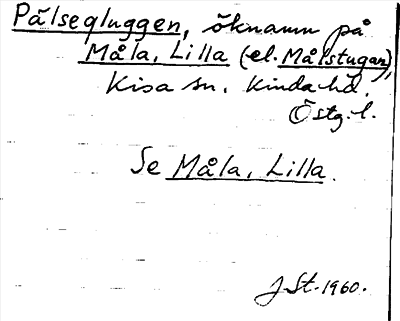 Pälsegluggen, öknamn på
Måla, Lilla (el. Målstugan),
Kisa sn. Kinda hd.
Östg. l.
Se Måla, Lilla.
J. St. 1960.